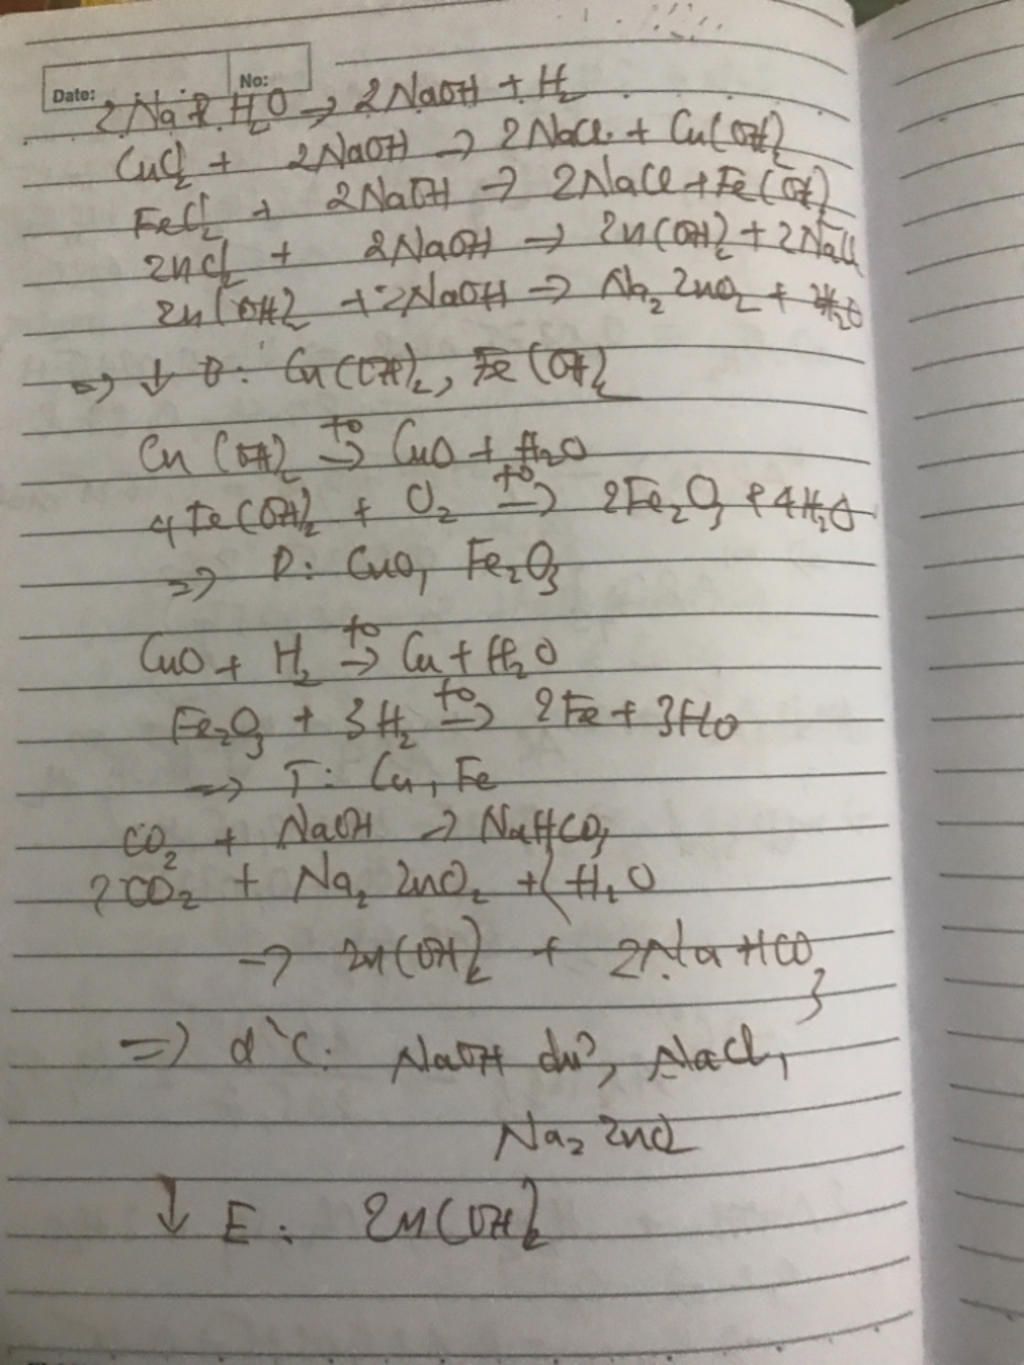 Date: No:
2Na + 2 H₂O → 2NaOH + H₂
CuCl₂ + 2NaOH → 2NaCl + Cu(OH)₂
FeCl₂ + 2NaOH → 2NaCl + Fe(OH)₂
ZnCl₂ + 2NaOH → Zn(OH)₂ + 2NaCl
Zn(OH)₂ + 2NaOH → Na₂ZnO₂ + 2H₂O
=> ↓ B: Cu(OH)₂, Fe(OH)₂
Cu(OH)₂ →(to) CuO + H₂O
4Fe(OH)₂ + O₂ →(to) 2Fe₂O₃ + 4H₂O
=> D: CuO, Fe₂O₃
CuO + H₂ →(to) Cu + H₂O
Fe₂O₃ + 3H₂ →(to) 2Fe + 3H₂O
=> T: Cu, Fe
CO₂ + NaOH → NaHCO₃
2CO₂ + Na₂ZnO₂ + ( H₂O
→ Zn(OH)₂ + 2NaHCO₃
=> d²C: NaOH dư, NaCl,
Na₂ZnO₂
↓ E: Zn(OH)₂